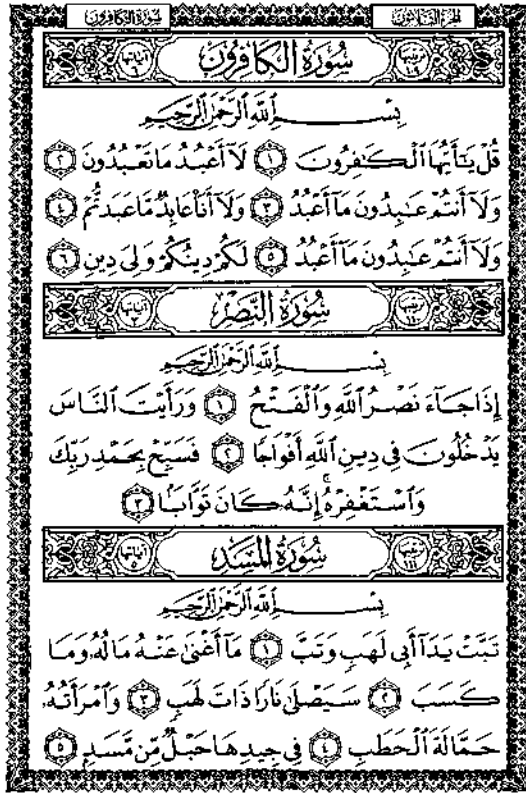 سُورَةُ الكَافِرُونَ الجُزْءُ الثَّلَاثُونَ
ترتيبها ١٠٩ سُورَةُ الكَافِرُونَ آياتها ٦
بِسْمِ ٱللَّهِ ٱلرَّحْمَٰنِ ٱلرَّحِيمِ
قُلْ يَٰٓأَيُّهَا ٱلْكَٰفِرُونَ ١ لَآ أَعْبُدُ مَا تَعْبُدُونَ ٢
وَلَآ أَنتُمْ عَٰبِدُونَ مَآ أَعْبُدُ ٣ وَلَآ أَنَا۠ عَابِدٌ مَّا عَبَدتُّمْ ٤
وَلَآ أَنتُمْ عَٰبِدُونَ مَآ أَعْبُدُ ٥ لَكُمْ دِينُكُمْ وَلِىَ دِينِ ٦
ترتيبها ١١٠ سُورَةُ النَّصْرِ آياتها ٣
بِسْمِ ٱللَّهِ ٱلرَّحْمَٰنِ ٱلرَّحِيمِ
إِذَا جَآءَ نَصْرُ ٱللَّهِ وَٱلْفَتْحُ ١ وَرَأَيْتَ ٱلنَّاسَ
يَدْخُلُونَ فِى دِينِ ٱللَّهِ أَفْوَاجًا ٢ فَسَبِّحْ بِحَمْدِ رَبِّكَ
وَٱسْتَغْفِرْهُ ۚ إِنَّهُۥ كَانَ تَوَّابًۢا ٣
ترتيبها ١١١ سُورَةُ المَسَدِ آياتها ٥
بِسْمِ ٱللَّهِ ٱلرَّحْمَٰنِ ٱلرَّحِيمِ
تَبَّتْ يَدَآ أَبِى لَهَبٍ وَتَبَّ ١ مَآ أَغْنَىٰ عَنْهُ مَالُهُۥ وَمَا
كَسَبَ ٢ سَيَصْلَىٰ نَارًا ذَاتَ لَهَبٍ ٣ وَٱمْرَأَتُهُۥ
حَمَّالَةَ ٱلْحَطَبِ ٤ فِى جِيدِهَا حَبْلٌ مِّن مَّسَدٍۭ ٥